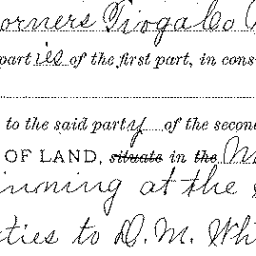 orners Tioga Co
part ies of the first part, in cons
to the said party of the secon
OF LAND, situate in the
inning at the
ties to D. M. Wh